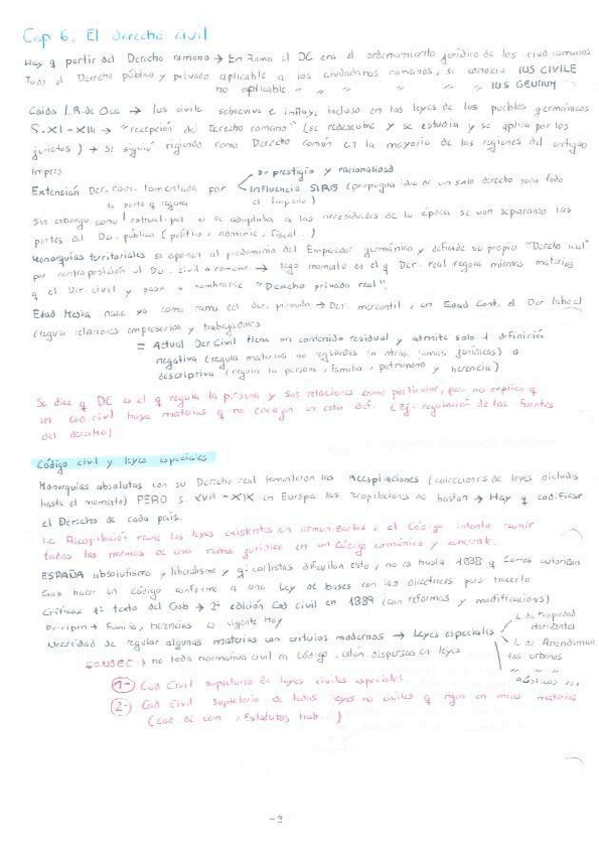 Cap 6. El derecho civil
Hay q partir del Derecho romano → En Roma el DC era el ordenamiento jurídico de los ciudadanos
Todo el Derecho público y privado aplicable a los ciudadanos romanos, se conocía IUS CIVILE
no aplicable " " " " " " IUS GENTIUM
Caída I.R. de Occ → Ius civile sobrevive e influye incluso en las leyes de los pueblos germánicos
S. XI - XIII → "recepción del Derecho romano" (se redescubre y se estudia y se aplica por los
juristas) → Se siguió rigiendo como Derecho común en la mayoría de las regiones del antiguo
Imperio
Extensión Der. rom. fomentada por su prestigio y racionalidad
Influencia SIRG (propugna idea de un solo derecho para todo
el Imperio)
Sin embargo como no se adaptaba a las necesidades de la época se van separando las
partes del Der. público (político, administ, fiscal...)
Monarquías territoriales se oponen al predominio del Emperador germánico y defiende su propio "Derecho real"
por contraposición al Der. civil o romano → llega momento en el q Der. real regula mismas materias
q el Der civil y pasa a nombrarse "Derecho privado real".
Edad Media nace ya como rama del der. privado → Der mercantil, en Edad Cont. el Der laboral
(regula relaciones empresarios y trabajadores
= Actual Der Civil tiene un contenido residual y admite solo 1 definición
negativa (regula materias no reguladas en otras ramas jurídicas) o
descriptiva (regula la persona, familia, patrimonio y herencia)
Se dice q DC es el q regula la persona y sus relaciones como particular, pero no explica q
un Cod. civil haya materias q no encajan en esta def. (Ej - regulación de las fuentes
del derecho)
Código civil y leyes especiales
Monarquías absolutas con su Derecho real fomentaron las Recopilaciones (colecciones de leyes dictadas
hasta el momento) PERO S. XVII - XIX en Europa las recopilaciones no bastan → Hay q codificar
el Derecho de cada país.
La Recopilación reúne las leyes existentes sin armonizarlas, el Código intenta reunir
todas las normas de una rama jurídica en un Código armónico y coherente.
ESPAÑA absolutismo y liberalismo y gª carlistas dificultan esto, no es hasta 1888 q Cortes autorizan
Gob hacer un Código conforme a una Ley de bases con las directrices para hacerlo
Críticas 1º texto del Gob → 2ª edición Cod civil en 1889 (con reformas y modificaciones)
Familia, herencias vigente Hoy
Necesidad de regular algunas materias con criterios modernos → Leyes especiales L. de Propiedad
Horizontal
L. de Arrendamien
tos urbanos
" " "
rústicos
CONSEC. → no toda normativa civil en Código, están dispersas en leyes
1- Cod Civil supletorio de leyes civiles especiales
2- Cod Civil supletorio de todas leyes no civiles q rigen en otras materias
(Cod de com, Estatutos trab...)
-9